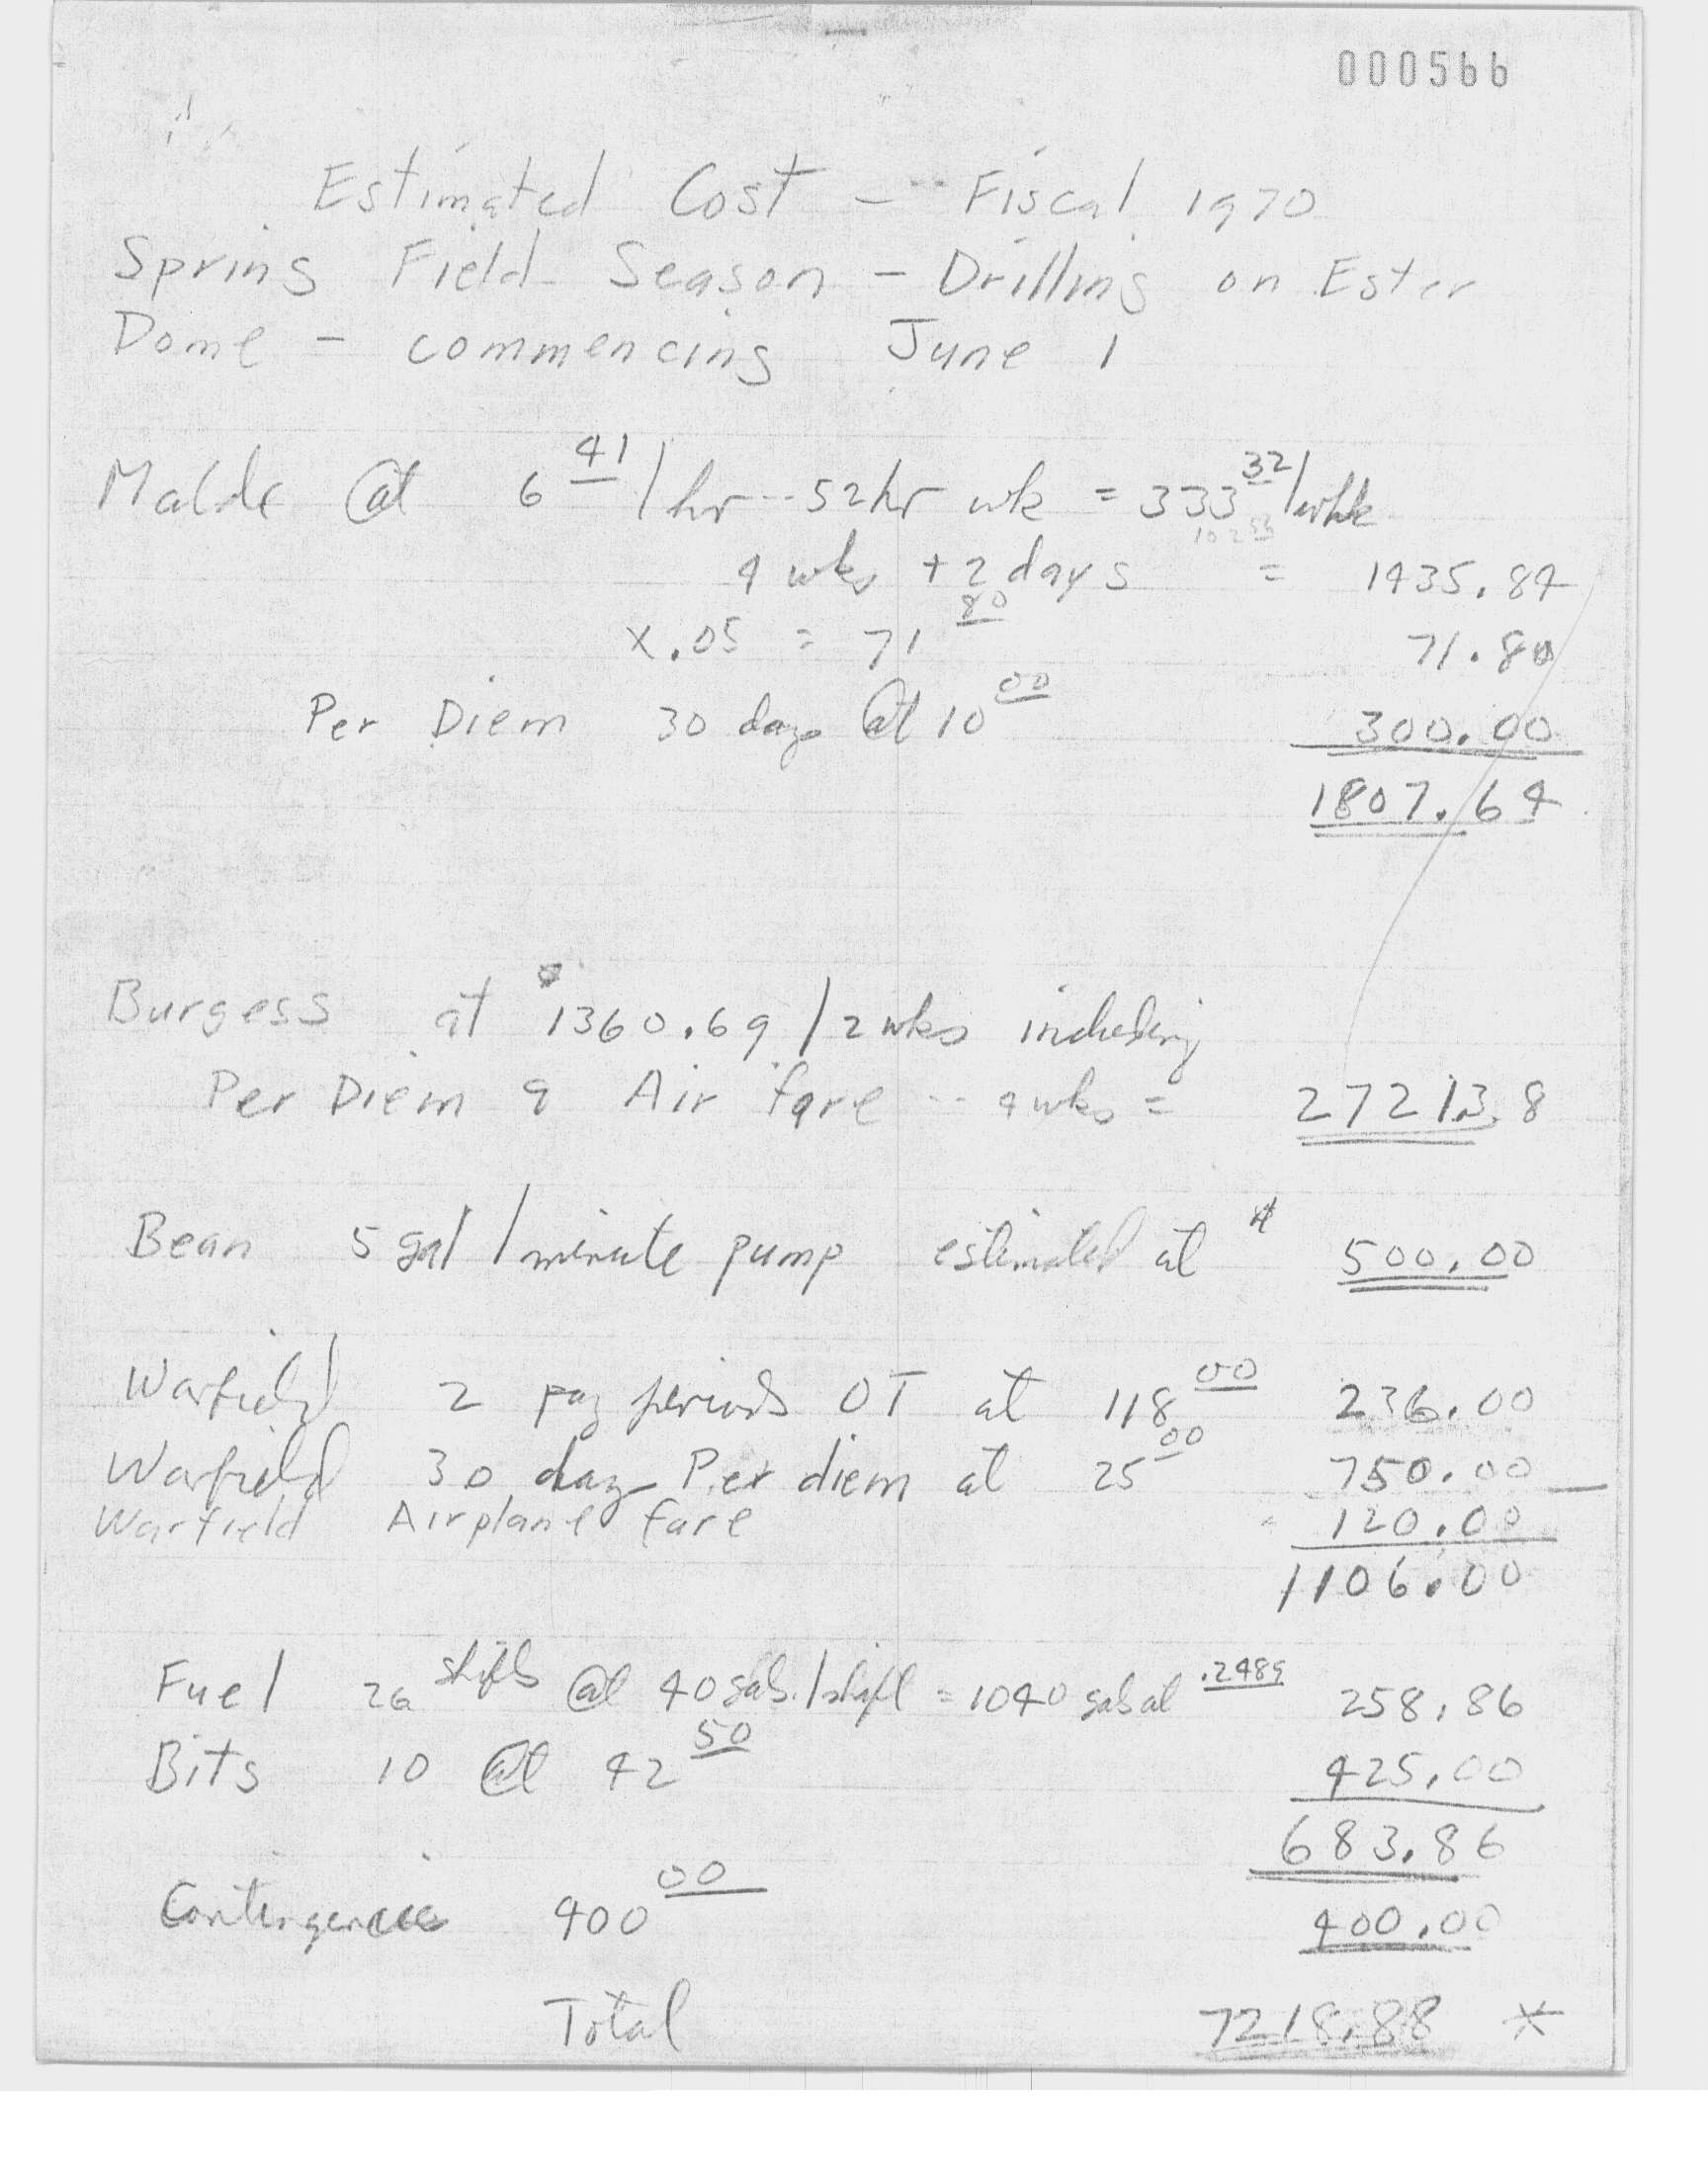 000566
Estimated Cost - Fiscal 1970
Spring Field Season - Drilling on Ester
Dome - commencing June 1
Malde @ 6 41/hr -- 52 hr wk = 333 32/wk
102 53
4 wks + 2 days = 1435.84
x .05 = 71 80 71.80
Per Diem 30 days @ 10 00 300.00
1807.64
Burgess at $1360.69 / 2 wks including
Per Diem & Air fare -- 4 wks = 2721.38
Bean 5 gal / minute pump estimated at $ 500.00
Warfield 2 pay periods OT at 118 00 236.00
Warfield 30 day Per diem at 25 00 750.00
Warfield Airplane fare 120.00
1106.00
Fuel 26 shifts @ 40 gals./shift = 1040 gals at .2489 258.86
Bits 10 @ 42 50 425.00
683.86
Contingencies 400 00 400.00
Total 7218.88 *